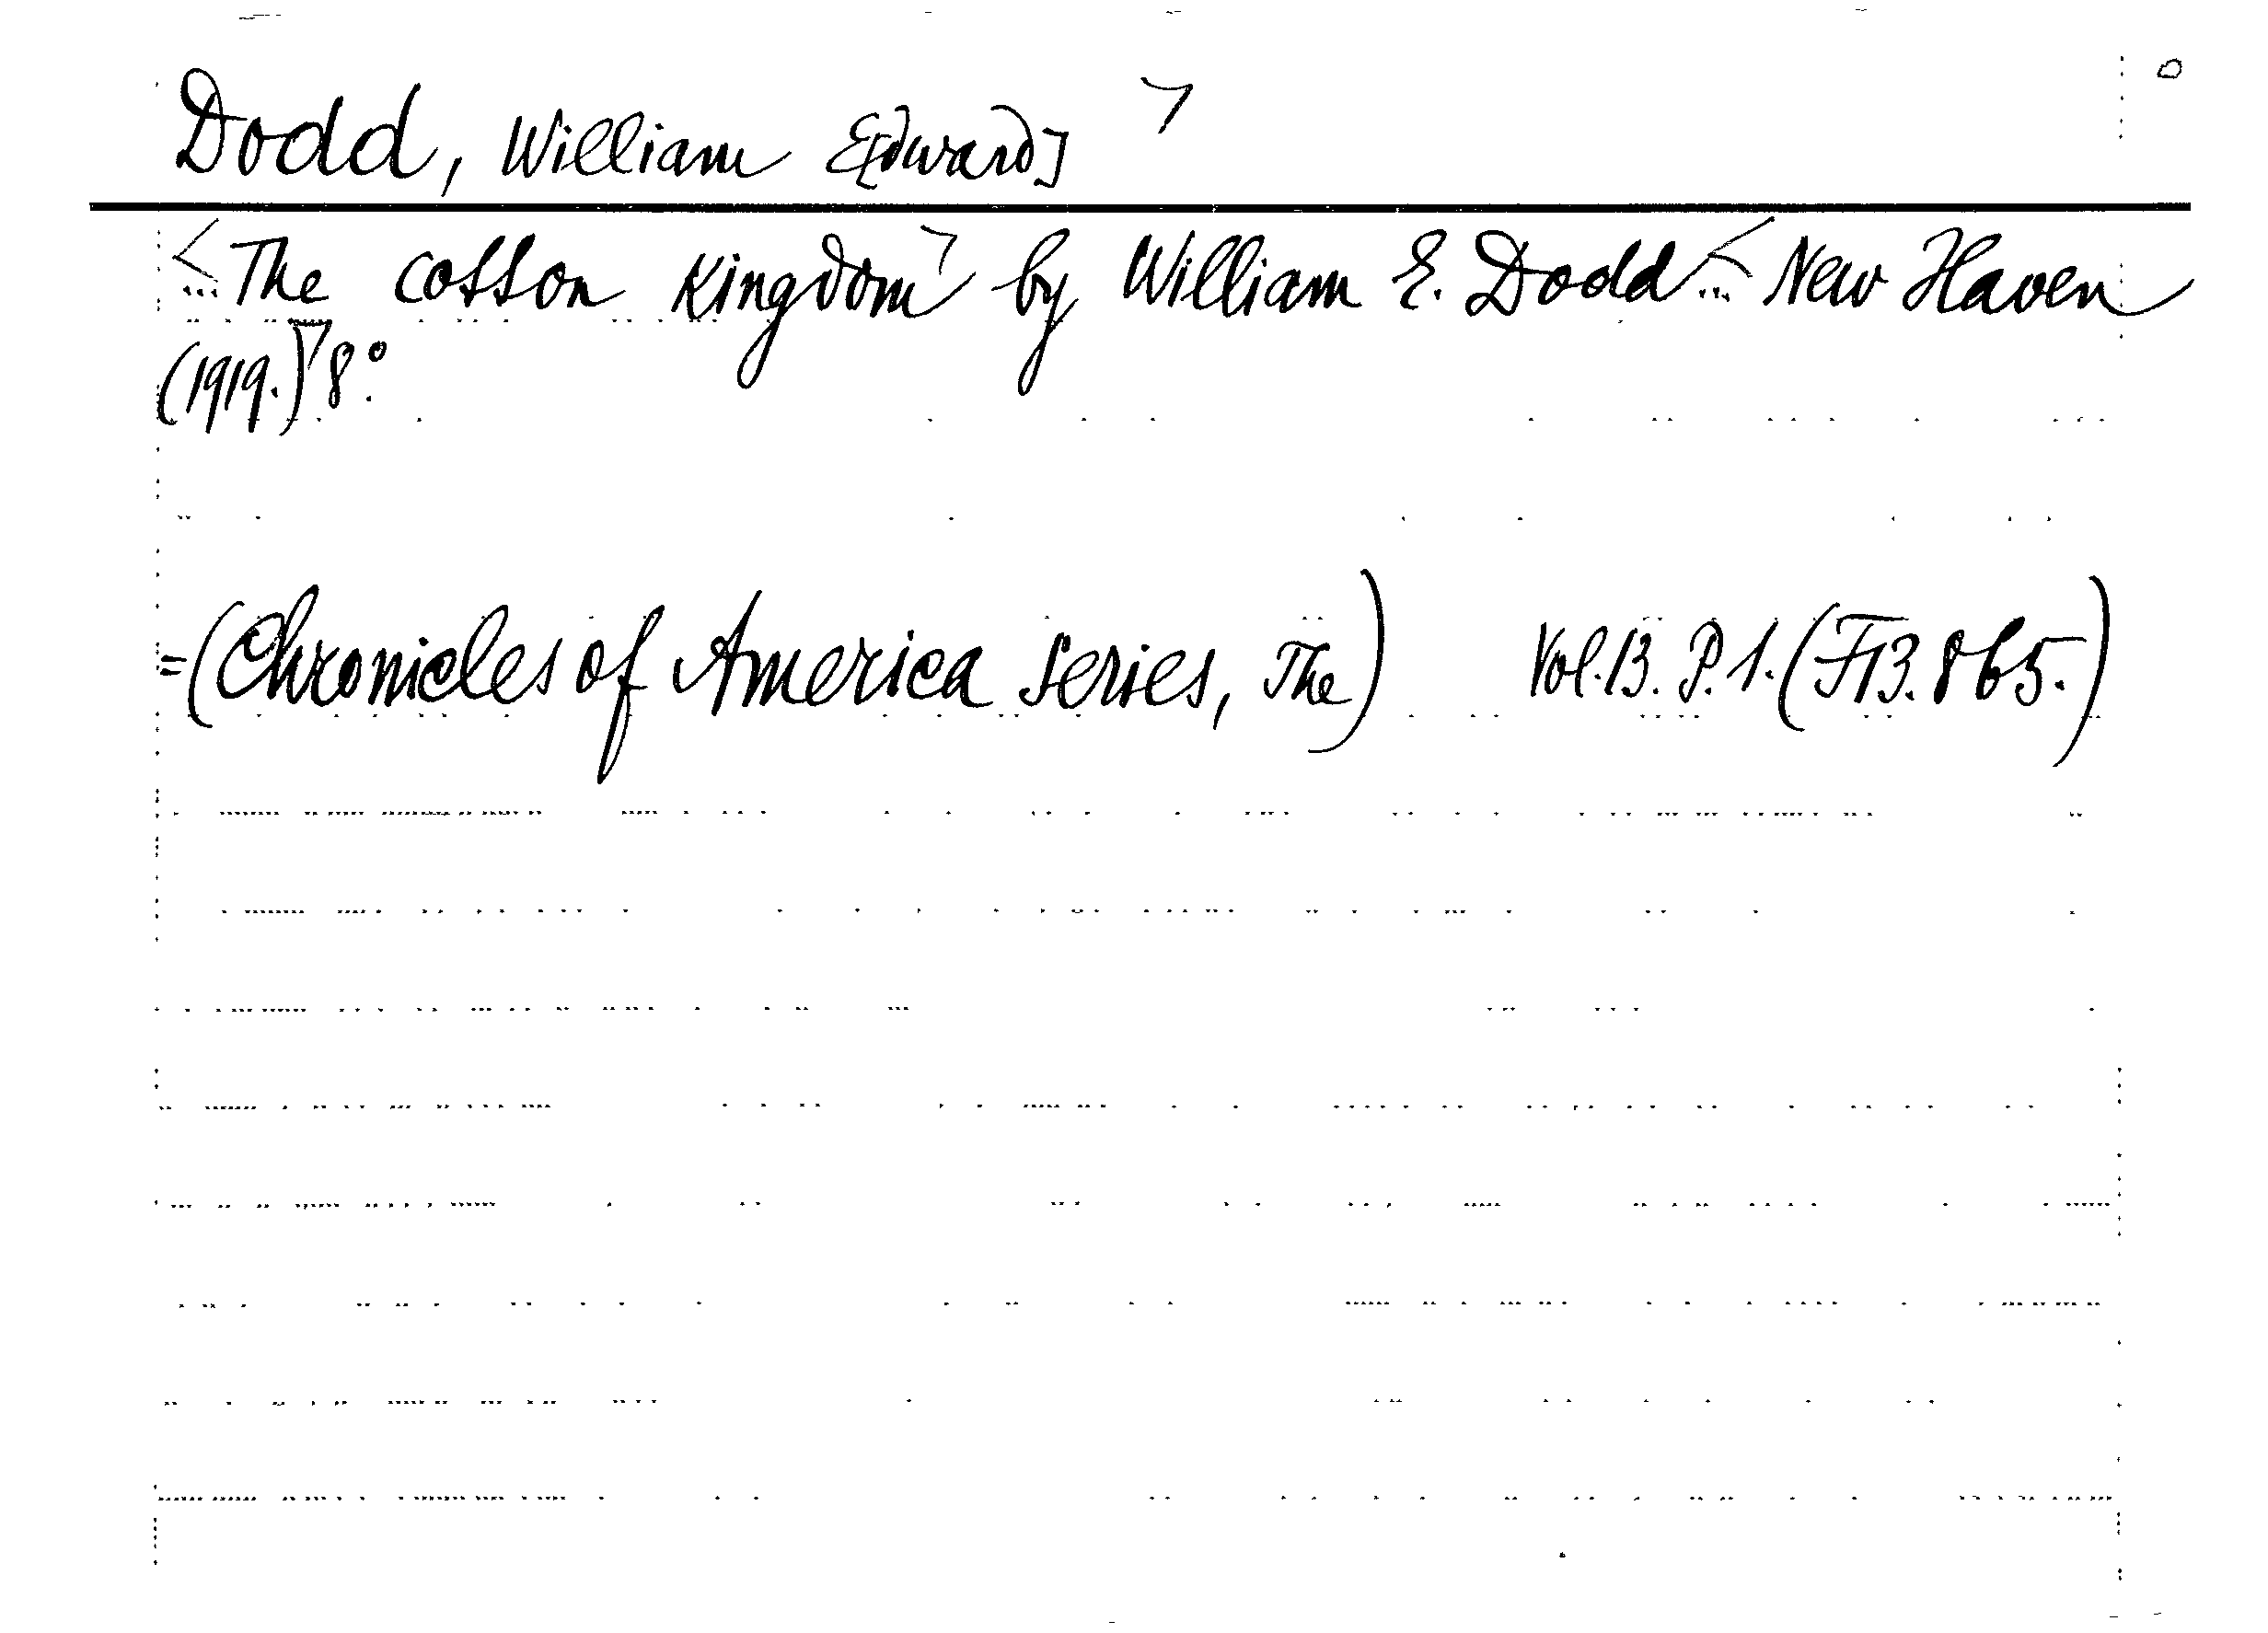 Dodd, William E[dward]
... The cotton kingdom by William E. Dodd ... New Haven
(1919.) 8°.
=(Chronicles of America series, The) Vol. 13. P. 1. (F13.865.)